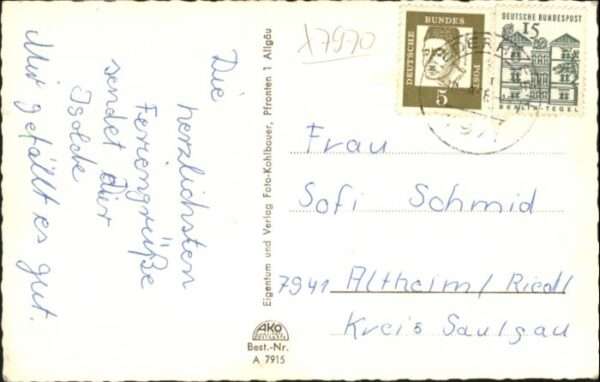 Die
herzlichsten
Feriengrüße
sendet Dir
Isolde
Mir gefällt es gut.
Eigentum und Verlag Foto-Kohlbauer, Pfronten 1 Allgäu
AKO
Best.-Nr.
A 7915
X7970
DEUTSCHE
BUNDES
POST
5
DEUTSCHE BUNDESPOST
15
BERLIN-TEGEL
Frau
Sofi Schmid
7941 Altheim/Riedl
Kreis Saulgau